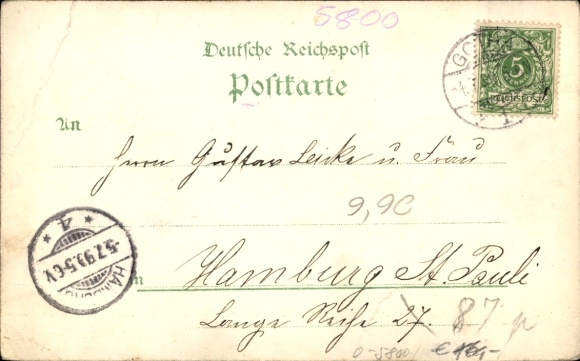 5800
Deutsche Reichspost
Postkarte
5
REICHSPOST
GOTHA
An
Herrn Gustav Leicke u. Frau
9,90
HAMBURG
5.7.99.5-6V
4
in
Hamburg St. Pauli
Lange Reihe 27.
87
0-5800